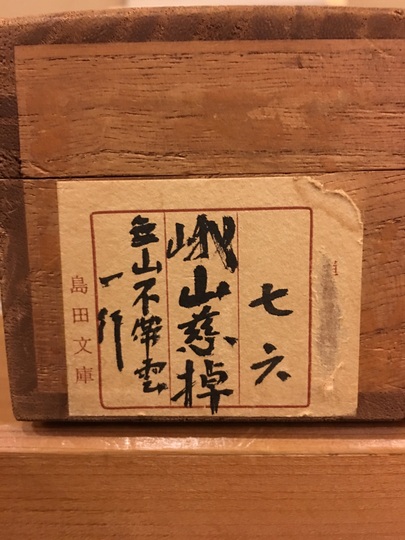 七六
峨山慈棹
無山不帯雲
一行
島田文庫